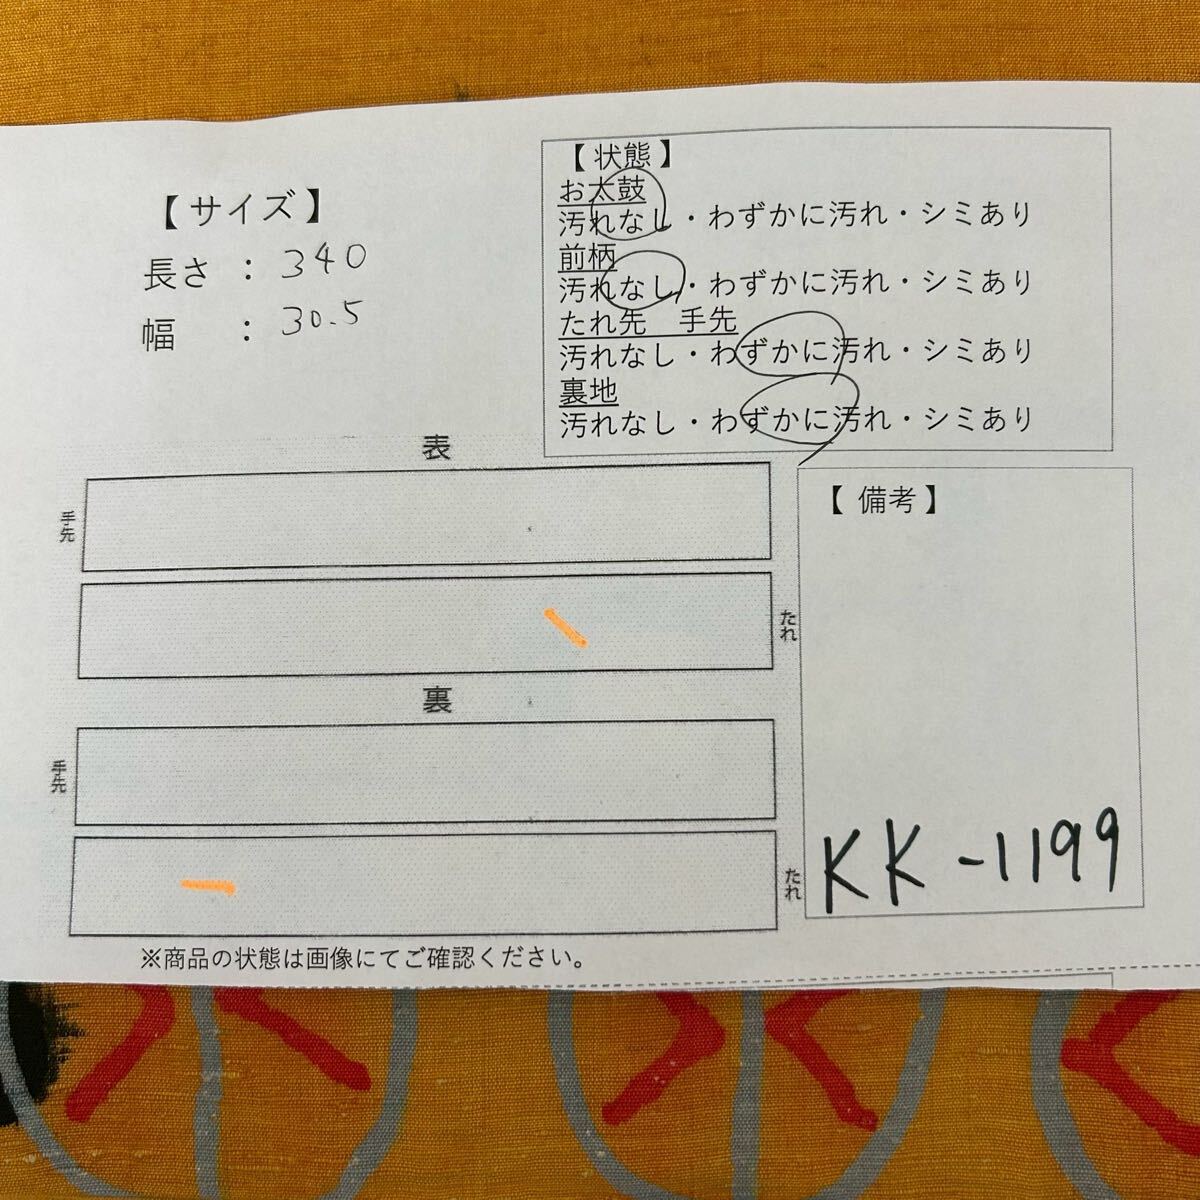 【 サイズ 】
長さ ： 340
幅 ： 30.5
【 状態 】
お太鼓
汚れなし・わずかに汚れ・シミあり
前柄
汚れなし・わずかに汚れ・シミあり
たれ先 手先
汚れなし・わずかに汚れ・シミあり
裏地
汚れなし・わずかに汚れ・シミあり
表
手先
たれ
裏
手先
たれ
【 備考 】
KK-1199
※商品の状態は画像にてご確認ください。